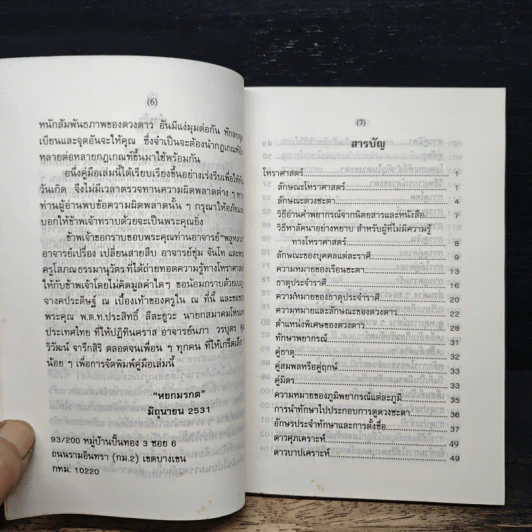 (6)
หนักสัมพันธภาพของดวงดาว อันมีแง่มุมต่อกัน หัก
เบียนและจุดอันจะให้คุณ ซึ่งจำเป็นจะต้องนำกฎเกณฑ์อื่น
หลายต่อหลายกฎเกณฑ์ขึ้นมาใช้พร้อมกัน
อนึ่งคู่มือเล่มนี้ได้เรียบเรียงขึ้นอย่างเร่งรีบเพื่อให้
วันเกิด จึงไม่มีเวลาตรวจทานความผิดพลาดต่าง ๆ
ท่านผู้อ่านพบข้อความผิดพลาดนั้น ๆ กรุณาให้อภัยและ
บอกให้ข้าพเจ้าทราบด้วยจะเป็นพระคุณยิ่ง
ข้าพเจ้าขอกราบขอบพระคุณท่านอาจารย์"พลูหลวง"
อาจารย์เปรื่อง เปลี่ยนสายสืบ อาจารย์ชุ่ม จันโท และ
ครูโสภณธรรมานุวัตร ที่ได้ถ่ายทอดความรู้ทางโหราศาสตร์
ให้กับข้าพเจ้าโดยไม่คิดมูลค่าใดๆ ขอน้อมกราบด้วย
จางคประดิษฐ์ ณ เบื้องเท้าของครูใน ณ ที่นี้ และขอขอบ
พระคุณ พ.ต.ท.ประสิทธิ์ ลีละยูวะ นายกสมาคมโหร
ประเทศไทย ที่ให้ปฏิทินดาราศ อาจารย์นภา วรบุตร
วิวัฒน์ จารึกสิริ ตลอดจนเพื่อน ๆ ทุกคน ที่ให้เกร็ดเล็ก
น้อย ๆ เพื่อการจัดพิมพ์คู่มือเล่มนี้
"หยกมรกต"
มิถุนายน 2531
93/200 หมู่บ้านปิ่นทอง 3 ซอย 6
ถนนรามอินทรา (กม.2) เขตบางเขน
กทม. 10220
(7)
สารบัญ
โหราศาสตร์ 1
ลักษณะโหราศาสตร์ 1
ลักษณะดวงชะตา 4
วิธีอ่านคำพยากรณ์จากนิตยสารและหนังสือ 7
วิธีหาลัคนาอย่างหยาบ สำหรับผู้ที่ไม่มีความรู้
ทางโหราศาสตร์ 8
ลักษณะของบุคคลแต่ละราศี 9
ความหมายของเรือนชะตา 13
ธาตุประจำราศี 16
ความหมายของธาตุประจำราศี 20
ความหมายและลักษณะของดวงดาว 21
ตำแหน่งพิเศษของดวงดาว 27
ทักษาพยากรณ์ 29
คู่ธาตุ 30
คู่สมพลหรือคู่ฤกษ์ 33
คู่มิตร 33
ความหมายของภูมิพยากรณ์แต่ละภูมิ 35
การนำทักษาไปประกอบการดูดวงชะตา 36
อักษรประจำทักษาและการตั้งชื่อ 37
ดาวศุภเคราะห์ 49
ดาวบาปเคราะห์ 49